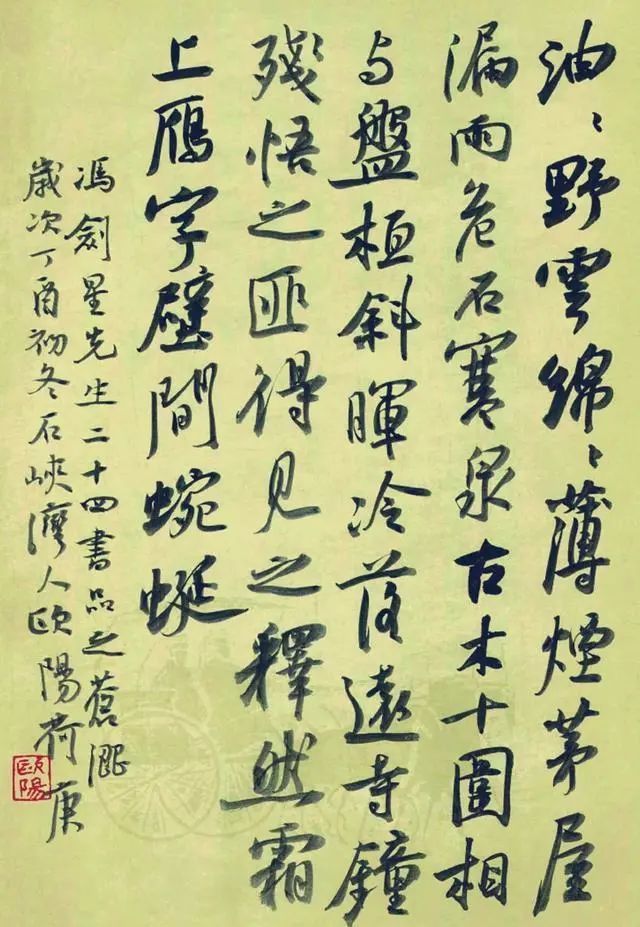 油〻野雲綿〻薄煙茅屋
漏雨危石寒泉古木十圍相
与盤桓斜暉冷落遠寺鐘
殘悟之匪得見之釋然霜
上鴈字壁間蜿蜒
馮劍星先生二十四書品之蒼澀
歲次丁酉初冬石峽灣人歐陽荷庚
歐陽